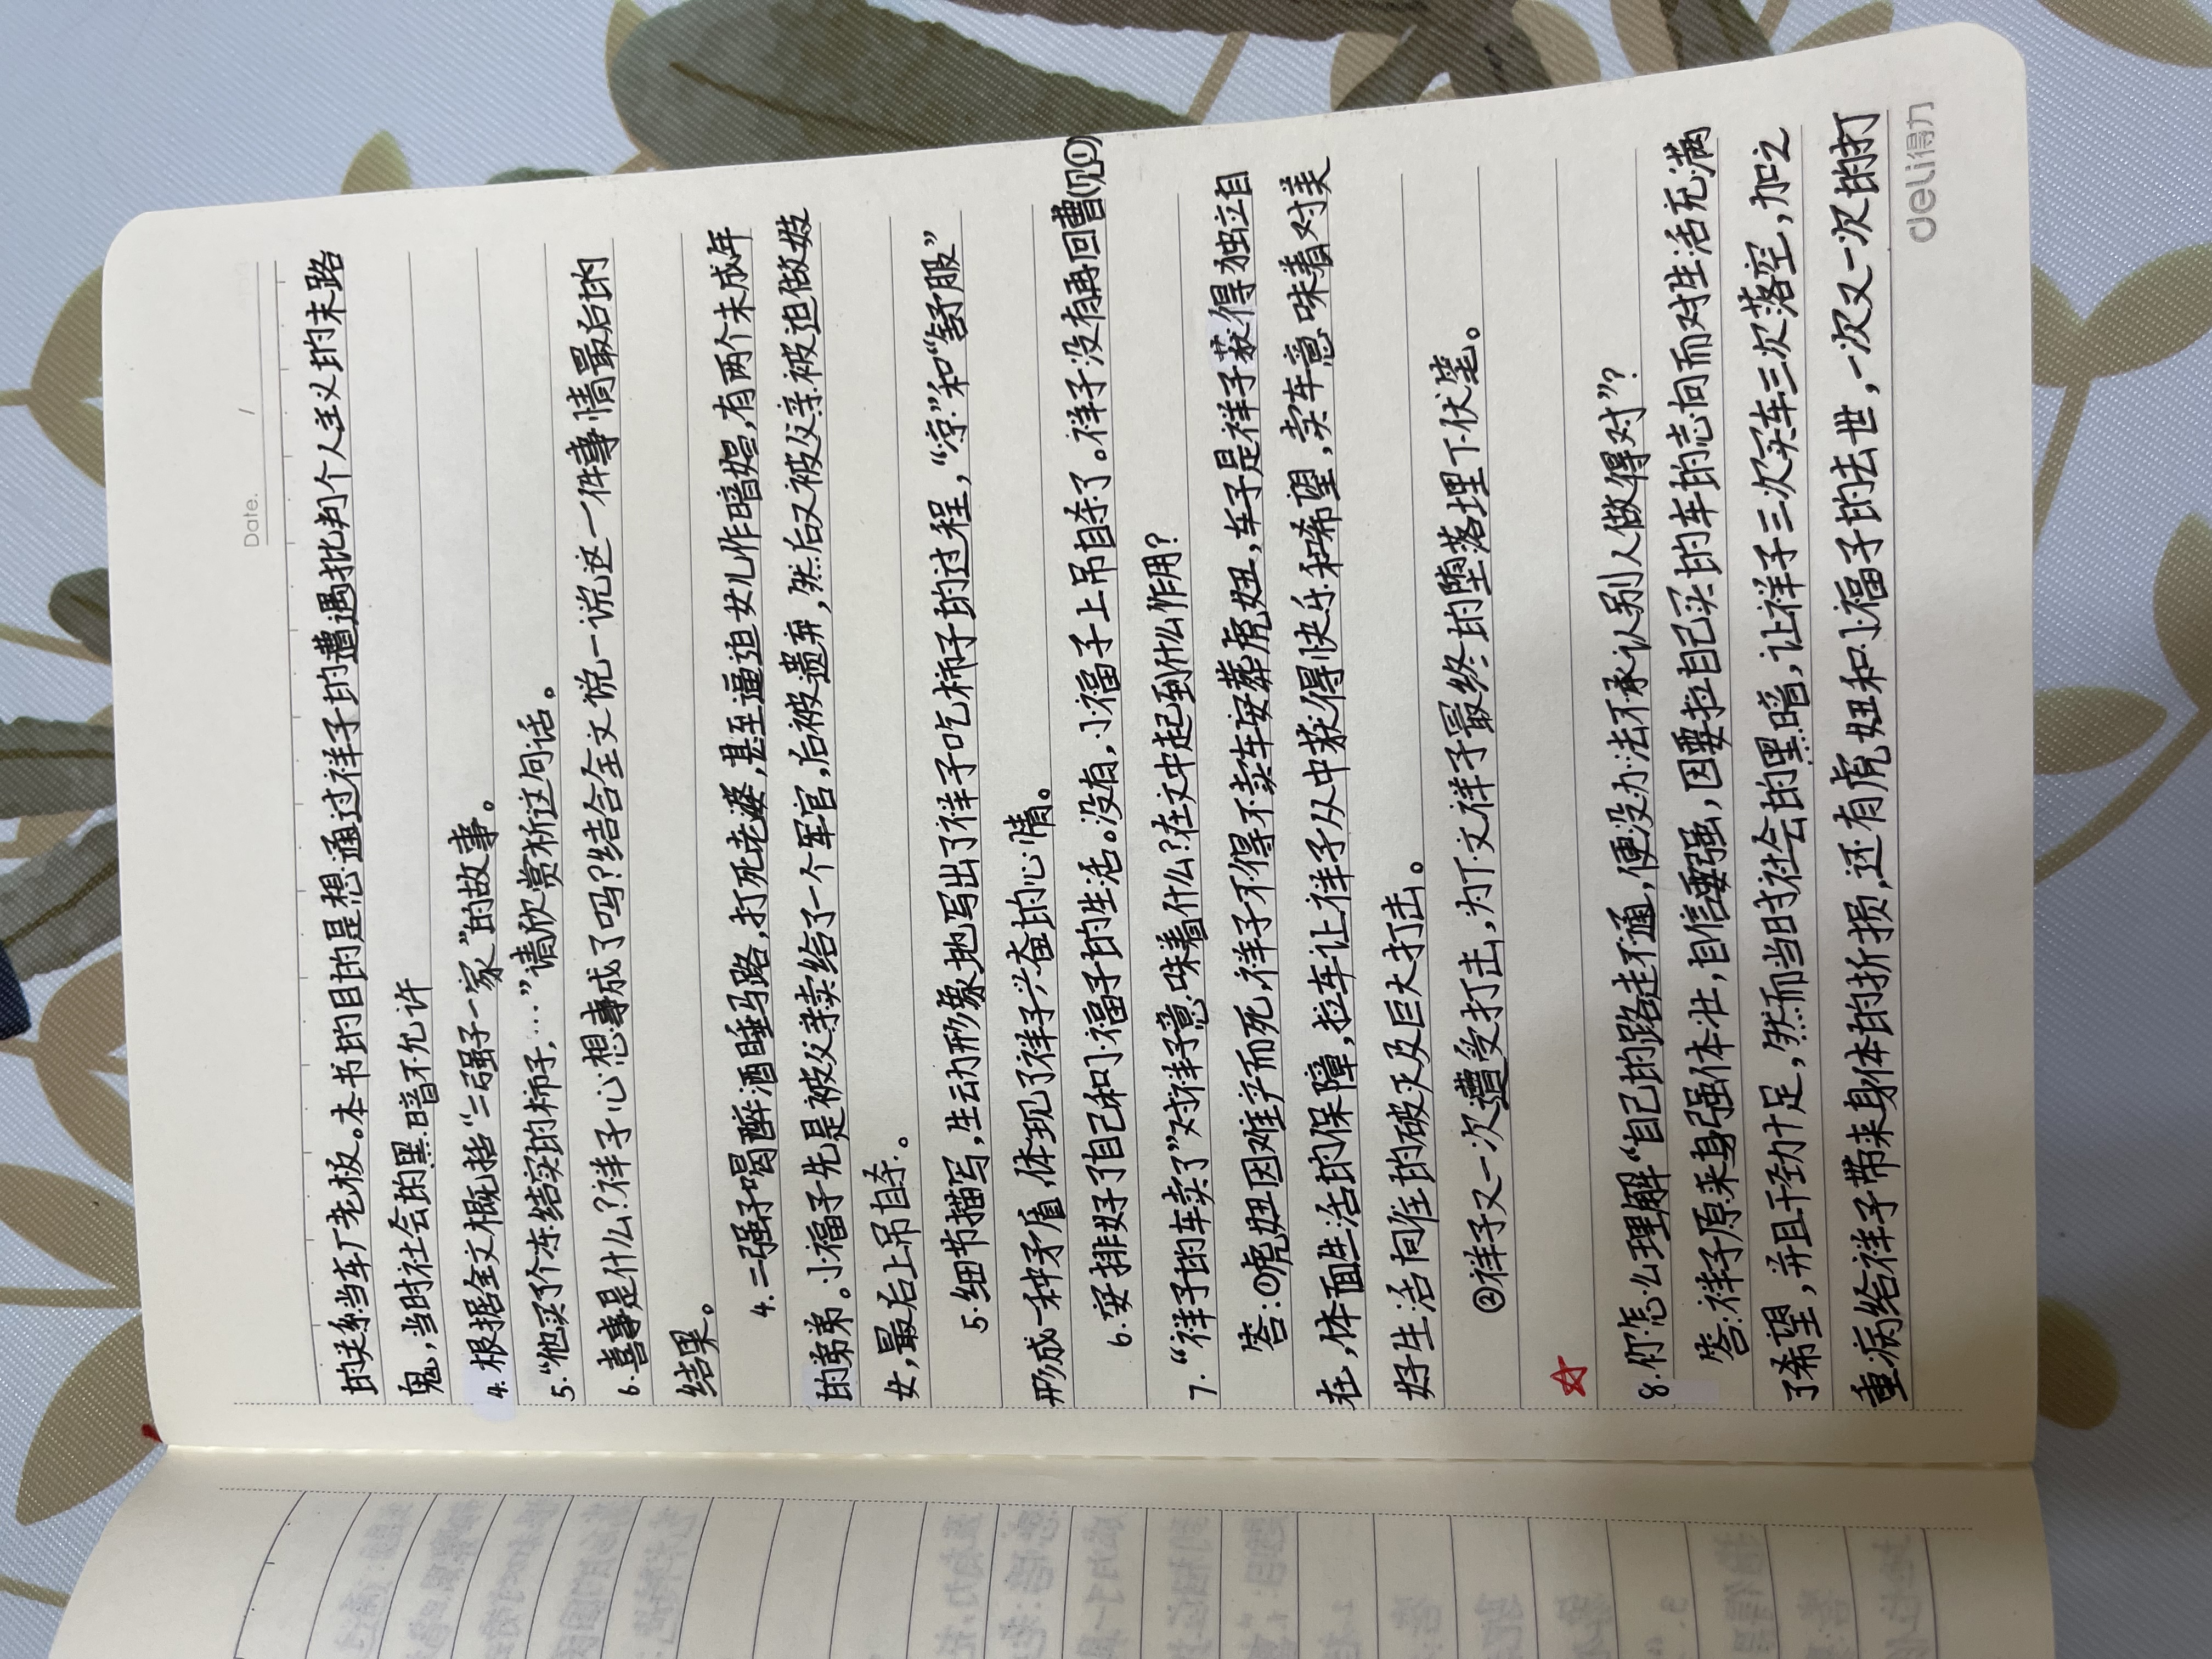 Date. /
的关系当车厂老板。本书的目的是想通过祥子的遭遇批判个人主义的末路
鬼,当时社会的黑暗不允许
4.根据全文概括“二强子一家”的故事。
5.“他买了个冻结实的柿子,…”请欣赏析这句话。
6.喜事是什么?祥子心想事成了吗?结合全文说一说这一件事情最后的
结果。
4.二强子喝醉酒睡马路,打死老婆,甚至逼迫女儿作暗娼,有两个未成年
的弟弟。小福子先是被父亲卖给了一个军官,后被遗弃,然后又被父亲被迫做妓
女,最后上吊自杀。
5.细节描写,生动形象地写出了祥子吃柿子的过程,“凉”和“舒服”
形成一种矛盾,体现了祥子兴奋的心情。
6.安排好了自己和小福子的生活。没有,小福子上吊自杀了。祥子没有再回曹(见①)
7.“祥子的车卖了”对祥子意味着什么?在文中起到什么作用?
答:①虎妞因难产而死,祥子不得不卖车安葬虎妞,车子是祥子获得独立自
在,体面生活的保障,拉车让祥子从中获得快乐和希望,卖车意味着对美
好生活向往的破灭及巨大打击。
②祥子又一次遭受打击,为下文祥子最终的堕落埋下伏笔。
8.你怎么理解“自己的路走不通,便没办法不承认别人做得对”?
答:祥子原来身强体壮,自信要强,因要拉自己买的车的志向而对生活充满
了希望,并且干劲十足,然而当时社会的黑暗,让祥子三次买车三次落空,加之
重病给祥子带来身体的折损,还有虎妞和小福子的去世,一次又一次的打
deli得力